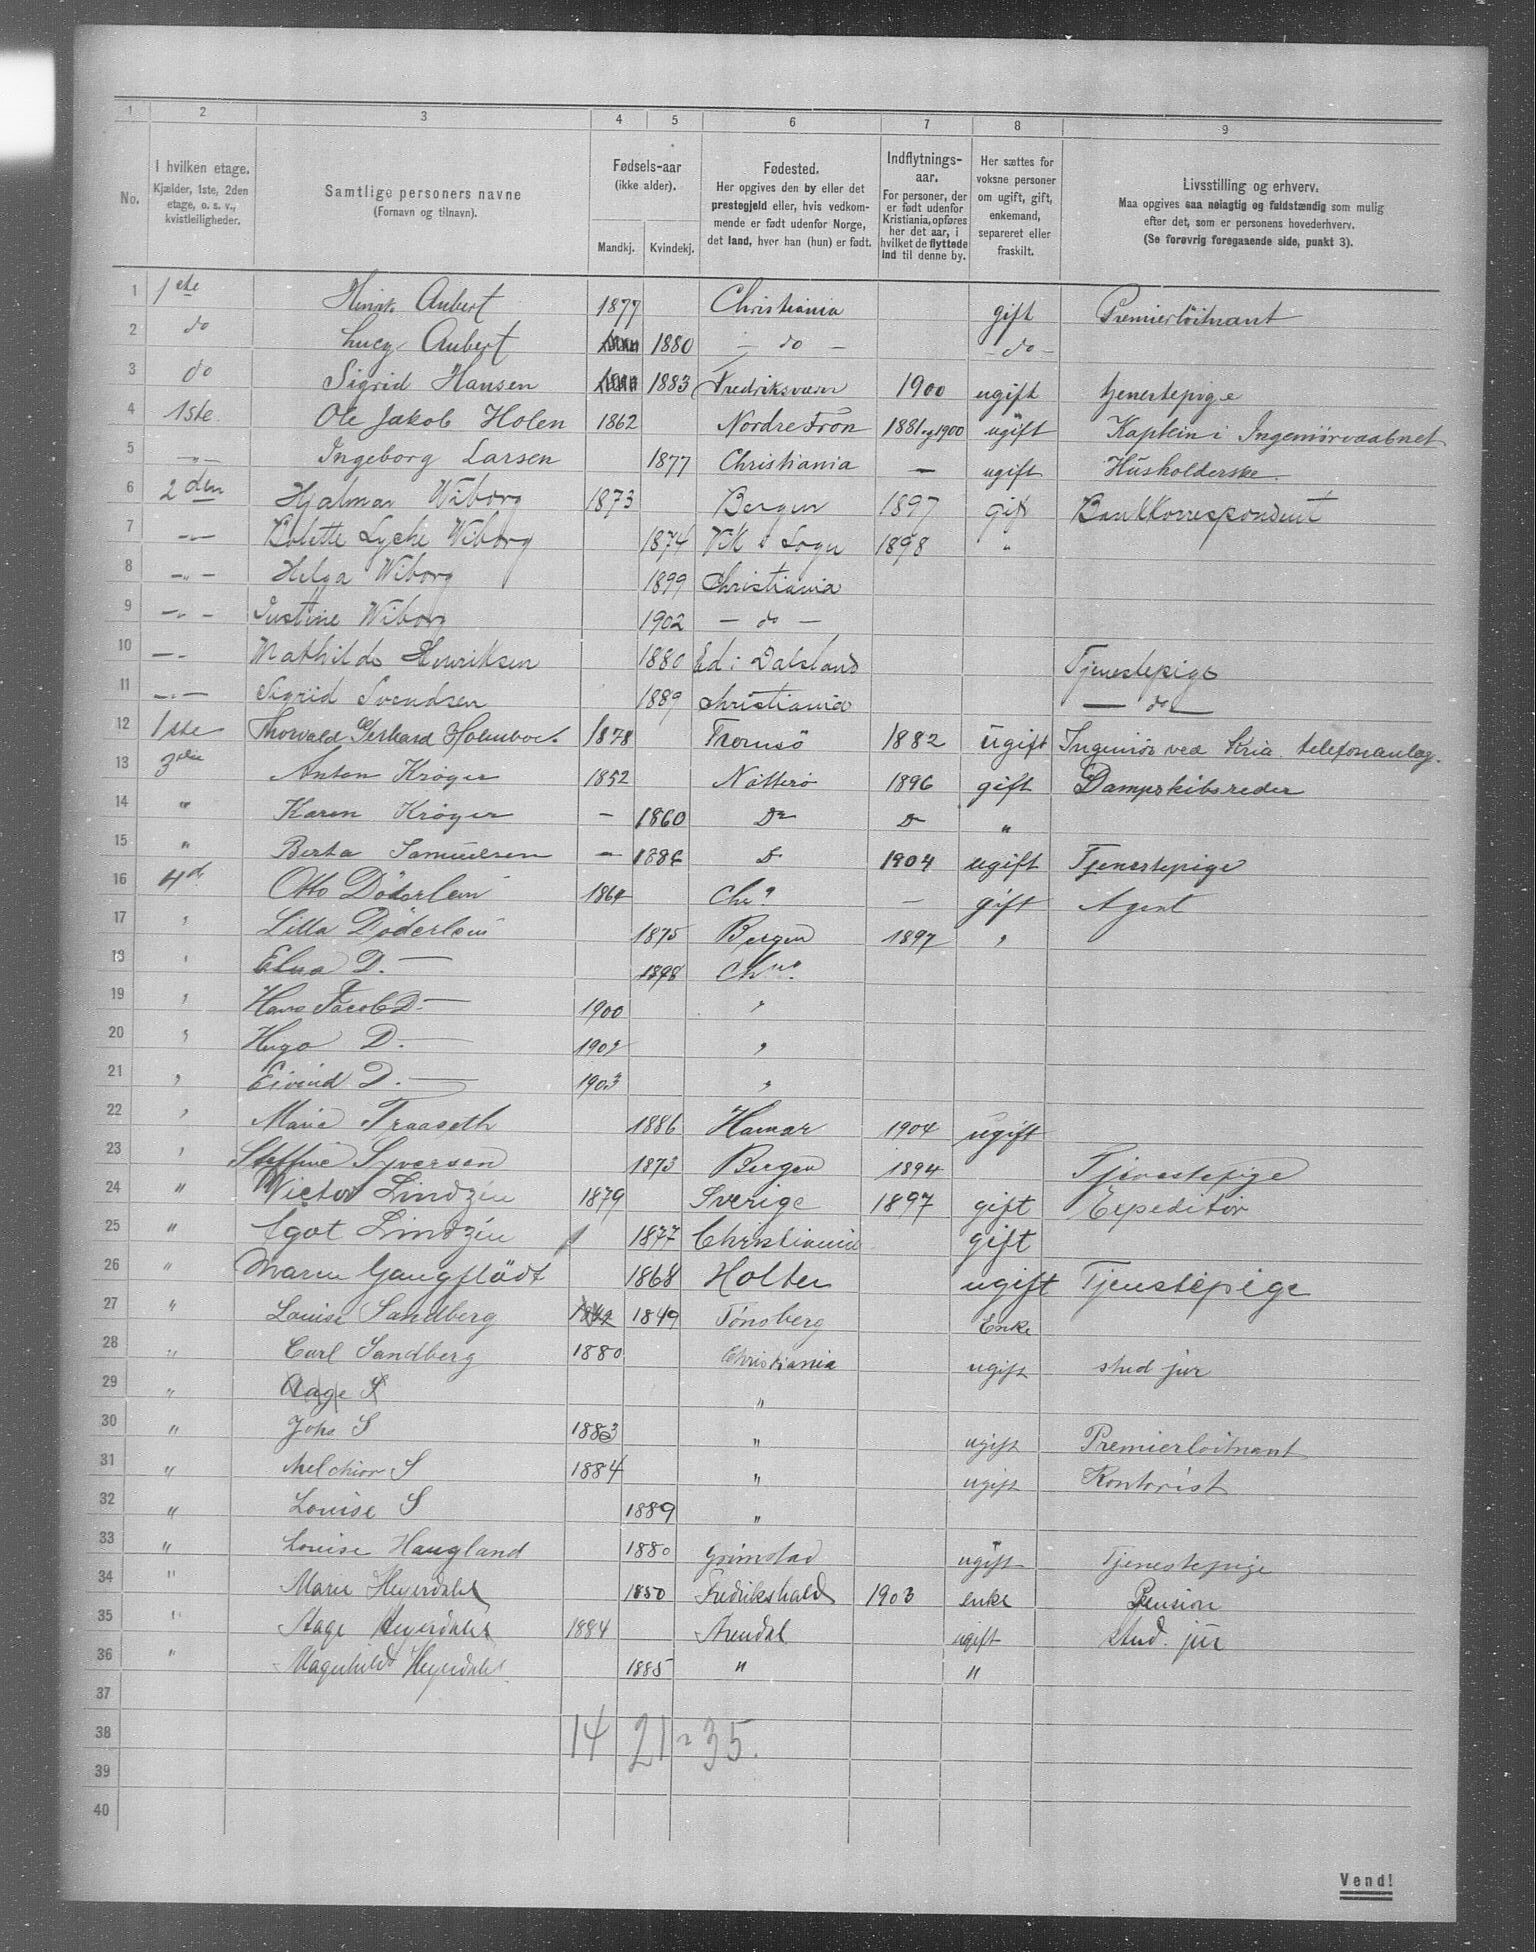 1 2 3 4 5 6 7 8 9
No.
I hvilken etage. Kjælder, 1ste, 2den etage, o. s. v., kvistleiligheder.
Samtlige personers navne (Fornavn og tilnavn).
Fødsels-aar (ikke alder). Mandkj. Kvindekj.
Fødested. Her opgives den by eller det prestegjeld eller, hvis vedkommende er født udenfor Norge, det land, hvor han (hun) er født.
Indflytnings-aar. For personer, der er født udenfor Kristiania, opføres her det aar, i hvilket de flyttede ind til denne by.
Her sættes for voksne personer om ugift, gift, enkemand, separeret eller fraskilt.
Livsstilling og erhverv. Maa opgives saa nøiagtig og fuldstændig som mulig efter det, som er personens hovederhverv. (Se forøvrig foregaaende side, punkt 3).
1 1ste Henrik Aubert 1877 Christiania gift Premierløitnant
2 do Lucy Aubert 1880 — do — - do -
3 do Sigrid Hansen 1883 Fredriksværn 1900 ugift tjenestepige
4 1ste. Ole Jakob Holen 1862 Nordre Fron 1881 og 1900 ugift Kaptein i Ingeniørvaabnet
5 —"— Ingeborg Larsen 1877 Christiania — ugift Husholderske.
6 2den Hjalmar Wiborg 1873 Bergen 1897 gift Bankkorrespondent
7 —"— Bolette Lyche Wiborg 1874 Vik i Sogn 1898 "
8 —"— Helga Wiborg 1899 Christiania
9 —"— Justine Wiborg 1902 — do —
10 —"— Mathilde Henriksen 1880 Ed i Dalsland Tjenestepige
11 —"— Sigrid Svendsen 1889 Christiania — do —
12 1ste Thorvald Gerhard Holmboe. 1878 Tromsö 1882 ugift Ingeniör ved Kria. telefonanlæg.
13 3die Anton Krøger 1852 Nötterö 1896 gift Dampskibsreder
14 " Karen Krøger — 1860 Do Do "
15 " Berta Samuelsen — Do 1904 ugift Tjenestepige
16 4d. Otto Döderlein 1864 Chra — gift Agent
17 " Lilla Döderlein 1875 Bergen 1897 "
18 " Elna D. — 1898 Chra.
19 " Hans Jacob D — 1900 "
20 " Hugo D. — 1902 "
21 " Eivind D. — 1903 "
22 " Marie Traaseth 1886 Hamar 1904 ugift
23 " Steffine Syversen 1873 Bergen 1894 Tjenestepige
24 " Victor Lindzén 1879 Sverige 1897 gift Expeditör
25 " Agot Lindzén 1877 Christiania gift
26 " Maren Gangflödt 1868 Holter ugift Tjenestepige
27 " Louise Sandberg 1849 1849 Tönsberg Enke
28 " Carl Sandberg 1880 Christiania ugift stud jur
29 " Aage S "
30 " Johs S 1883 " ugift Premierløitnant
31 " Melchior S 1884 " ugift Kontorist
32 " Louise S 1889 "
33 " Louise Haugland 1880 Grimstad ugift Tjenestepige
34 " Marie Heyerdahl 1850 Fredrikshald 1903 enke Pension
35 " Aage Heyerdahl 1884 Arendal ugift stud. jur
36 " Ragnhild Heyerdahl 1885 " "
37
38 14 21 = 35.
39
40
Vend!